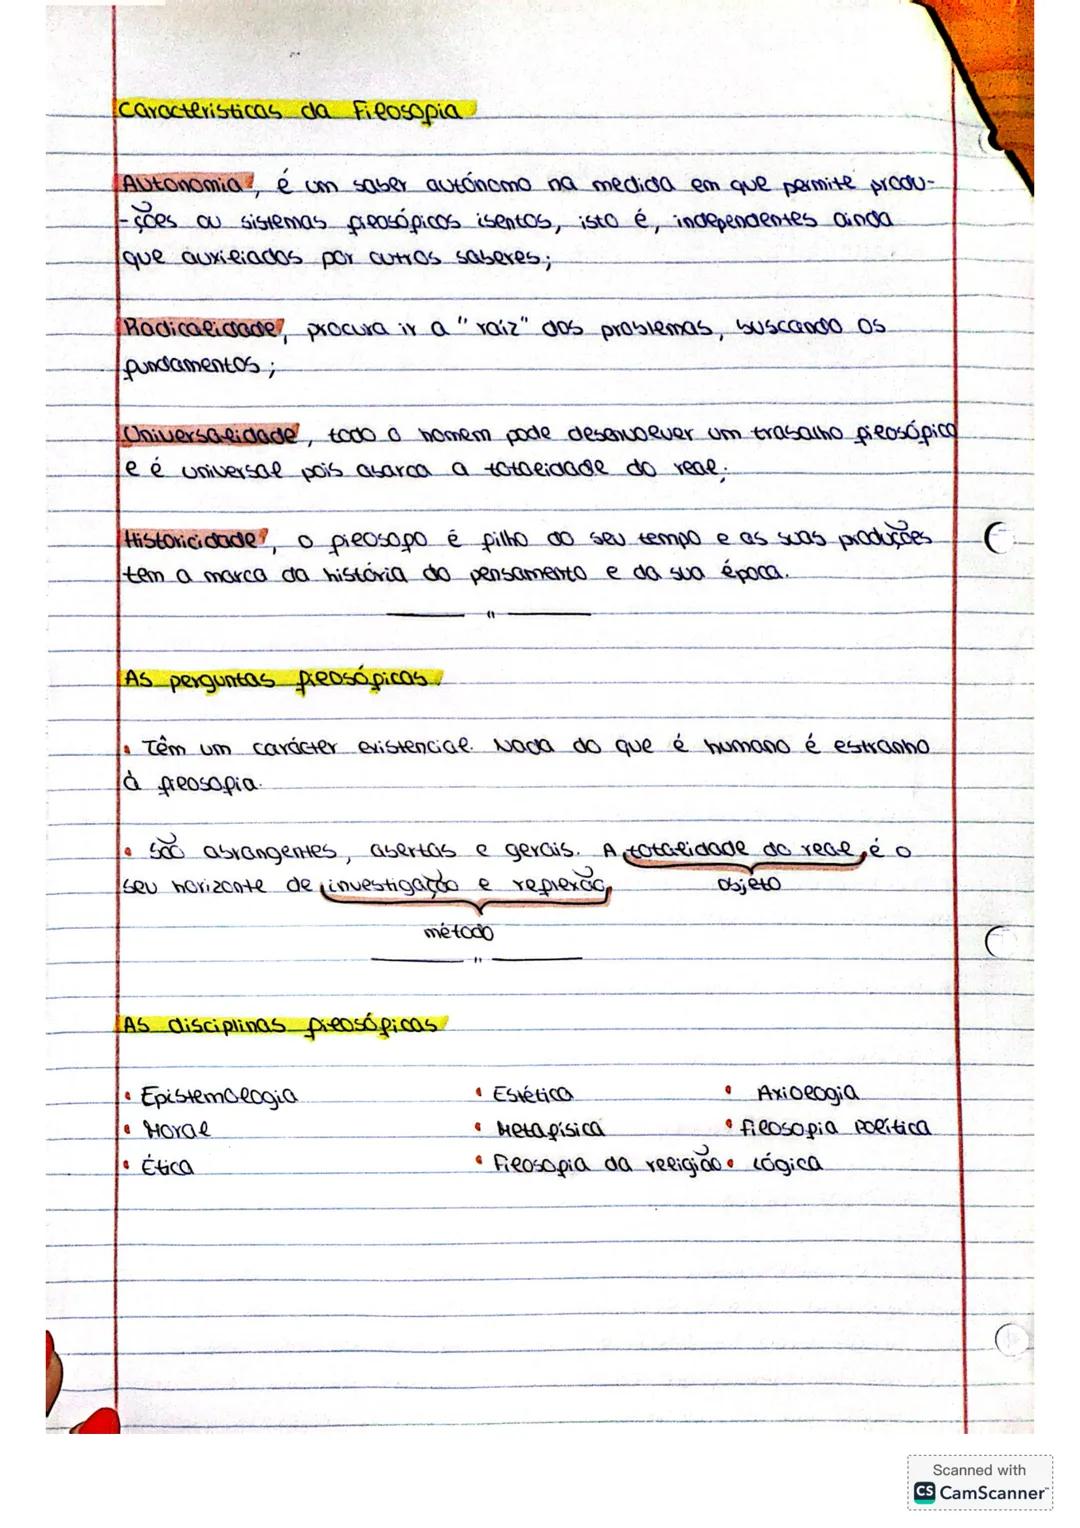 Características da Filosofia
Autonomia, é um saber autónomo na medida em que permite produ-
-ções ou sistemas filosóficos isentos, isto é, independentes ainda
que auxiliados por outros saberes;
Radicalidade, procura ir a "raíz" dos problemas, buscando os
fundamentos;
Universalidade, todo o homem pode desenvolver um trabalho filosófico
e é universal pois abarca a totalidade do real;
Historicidade, o filosofo é filho do seu tempo e as suas produções
tem a marca da história do pensamento e da sua época.
As perguntas filosóficas
• Têm um carácter existencial. Nada do que é humano é estranho
à filosofia.
• São abrangentes, abertas e gerais. A totalidade do real, é o
seu horizonte de investigação e reflexão,
objeto
método
As disciplinas filosóficas
• Epistemologia • Estética • Axiologia
• Moral • Metafísica • filosofia política
• Ética • Filosofia da religião • Lógica
Scanned with
CS CamScanner